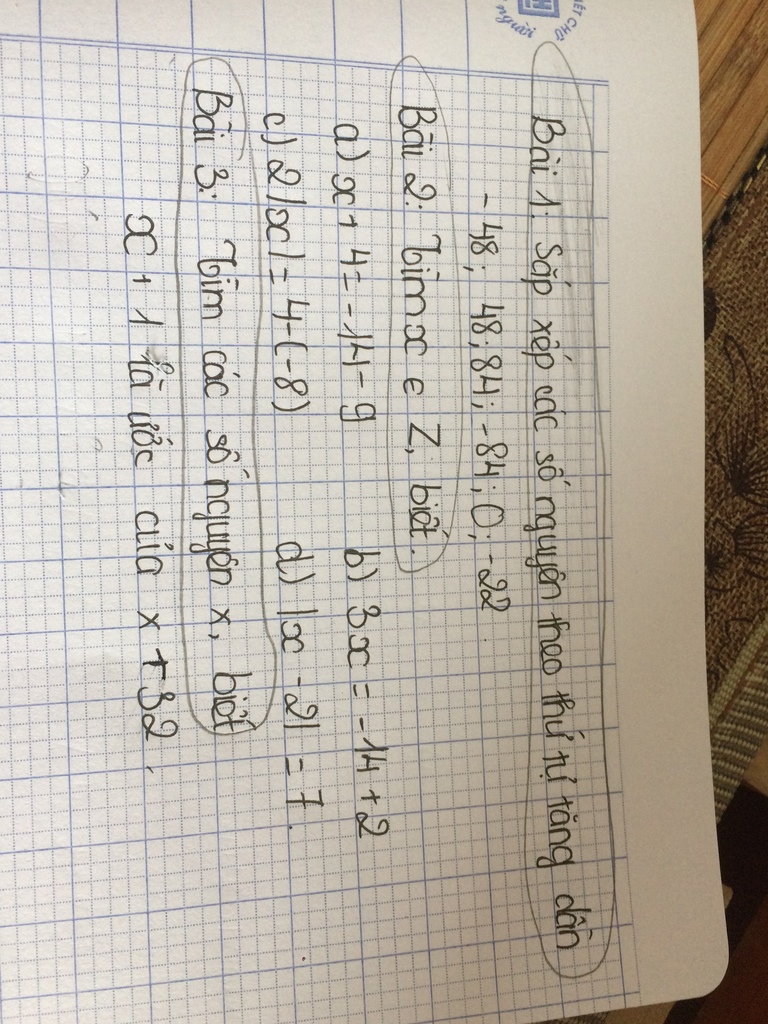 ẾT CHỮ
người
Bài 1: Sắp xếp các số nguyên theo thứ tự tăng dần
-48; 48; 84; -84; 0; -22.
Bài 2: Tìm x ∈ Z, biết.
a) x + 4 = -14 - 9 b) 3x = -14 + 2
c) 2|x| = 4-(-8) d) |x - 2| = 7.
Bài 3: Tìm các số nguyên x, biết
x + 1 là ước của x + 32.